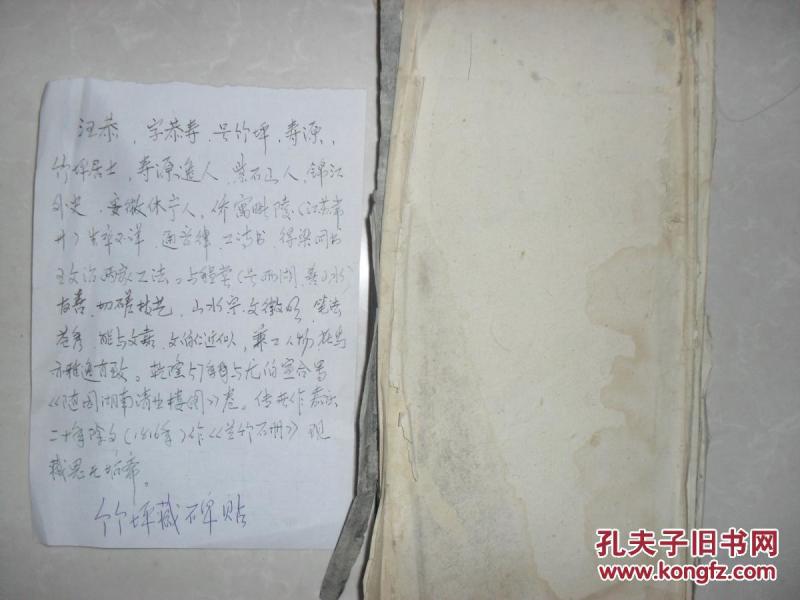 汪恭，字恭寿，号竹坪，寿源，
竹坪居士，寿源逸人，紫石山人，锦江
外史，安徽休宁人，侨寓毗陵（江苏常
州）生卒不详，通音律，工诗书，得梁同书
王文治两家工法。与程荣（号西湖，善山水）
友善，切磋技艺，山水宗文徵明，笔法
苍秀，能与文嘉，文伯仁近似，兼工人物花鸟
亦雅逸有致。乾隆57年与尤伯宣合写
《随园湖楼图》卷。传世作嘉庆
二十年除夕（1816年）作《兰竹石册》现
藏
竹坪藏碑贴
孔夫子旧书网
www.kongfz.com